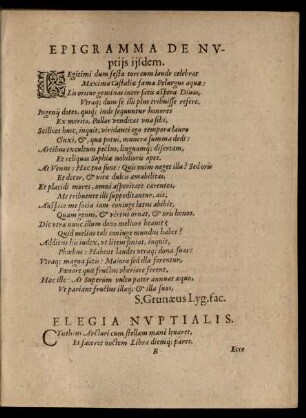 EPIGRAMMA DE NV-
ptijs ijsdem.
LEgitimi dum festa tori cum laude celebrat
Maxima Castalia fama Pelargus aqua:
Lis oritur geminas inter satis aspera Divas,
Vtraq; dum se illi plus tribuisse refert,
Ingenij dotes, quiq; inde sequuntur honores
Ex merito, Pallas vendicat una sibi,
Scilicet huic, inquit, viridanti ego tempora lauro
Cinxi, &, qua potui, munera summa dedi:
Artibus excultum pectus, linguamq; disertam,
Et reliquas Sophiæ nobilioris opes.
At Venus: Hæc tua sunt: Quis enim neget illa? Sed oris
Et decor, & vitæ dulcis amabilitas,
Et placidi mores, omni asperitate carentes,
Me tribuente illi suppeditantur, ait,
Auspice me socia jam conjuge lætus abibit,
Quam genus, & virtus ornat, & oris honos.
Dic vera nunc illum dono meliore beavit?
Quid melius tali conjuge mundus habet?
Additus his judex, vt litem finiat, inquit,
Phœbus: Habent laudes vtraq; dona suas:
Vtraq; magna satis: Maiora sed illa ferentur,
Fœnore quæ fructus vberiore ferent.
Hac ille: At Superûm vultu pater annuat æquo,
Vt pariant fructus illaq; & illa suos,
S. Grunæus Lyg. fac.
ELEGIA NVPTIALIS.
CTuthius Arcturi cum stellam mane levaret,
Et faceret noctem Libra diemq; pares.
B Ecce